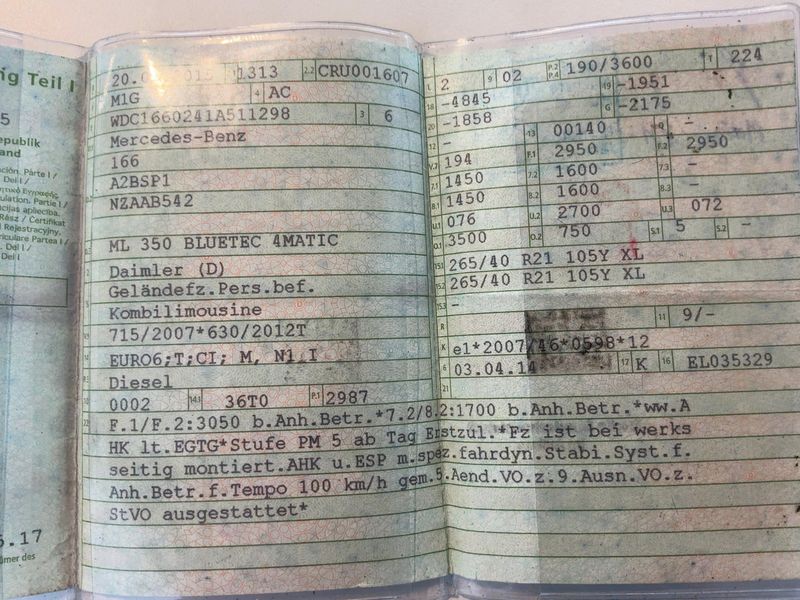 ig Teil I
5
epublik
and
ación. Parte I /
Del I /
ulation. Partie I /
cijas apliecība.
Rész / Certifikat
I Rejestracyjny,
riculare Partea I /
Del I /
Del I
5.17
mer des
20.0 2015 1313 2.2 CRU001607
M1G 4 AC
WDC1660241A511298 3 6
Mercedes-Benz
166
A2BSP1
NZAAB542
ML 350 BLUETEC 4MATIC
Daimler (D)
Geländefz.Pers.bef.
Kombilimousine
715/2007*630/2012T
EURO6;T;CI; M, N1 I
Diesel
0002 14.1 36T0 P.1 2987
L 2 9 02 P.2 P.4 190/3600 T 224
18 -4845 19 -1951
20 -1858 G -2175
12 - 13 00140 Q -
V.7 194 F.1 2950 F.2 2950
7.1 1450 7.2 1600 7.3 -
8.1 1450 8.2 1600 8.3 -
U.1 076 U.2 2700 U.3 072
O.1 3500 O.2 750 S.1 5 S.2 -
15.1 265/40 R21 105Y XL
15.2 265/40 R21 105Y XL
15.3 -
R 11 9/-
K e1*2007/46*0598*12
6 03.04.14 17 K 16 EL035329
21
22 F.1/F.2:3050 b.Anh.Betr.*7.2/8.2:1700 b.Anh.Betr.*ww.A
HK lt.EGTG*Stufe PM 5 ab Tag Erstzul.*Fz ist bei werks
seitig montiert.AHK u.ESP m.spez.fahrdyn.Stabi.Syst.f.
Anh.Betr.f.Tempo 100 km/h gem.5.Aend.VO.z.9.Ausn.VO.z.
StVO ausgestattet*